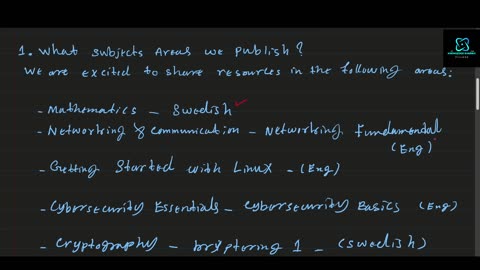 1. What subjects Areas we publish?
We are excited to share resources in the following areas:
- Mathematics - Swedish
- Networking & communication - Networking Fundamental
(Eng)
- Getting Started with Linux - (Eng)
- Cybersecurity Essentials - Cybersecurity Basics (Eng)
- Cryptography - kryptering 1 - (Swedish)